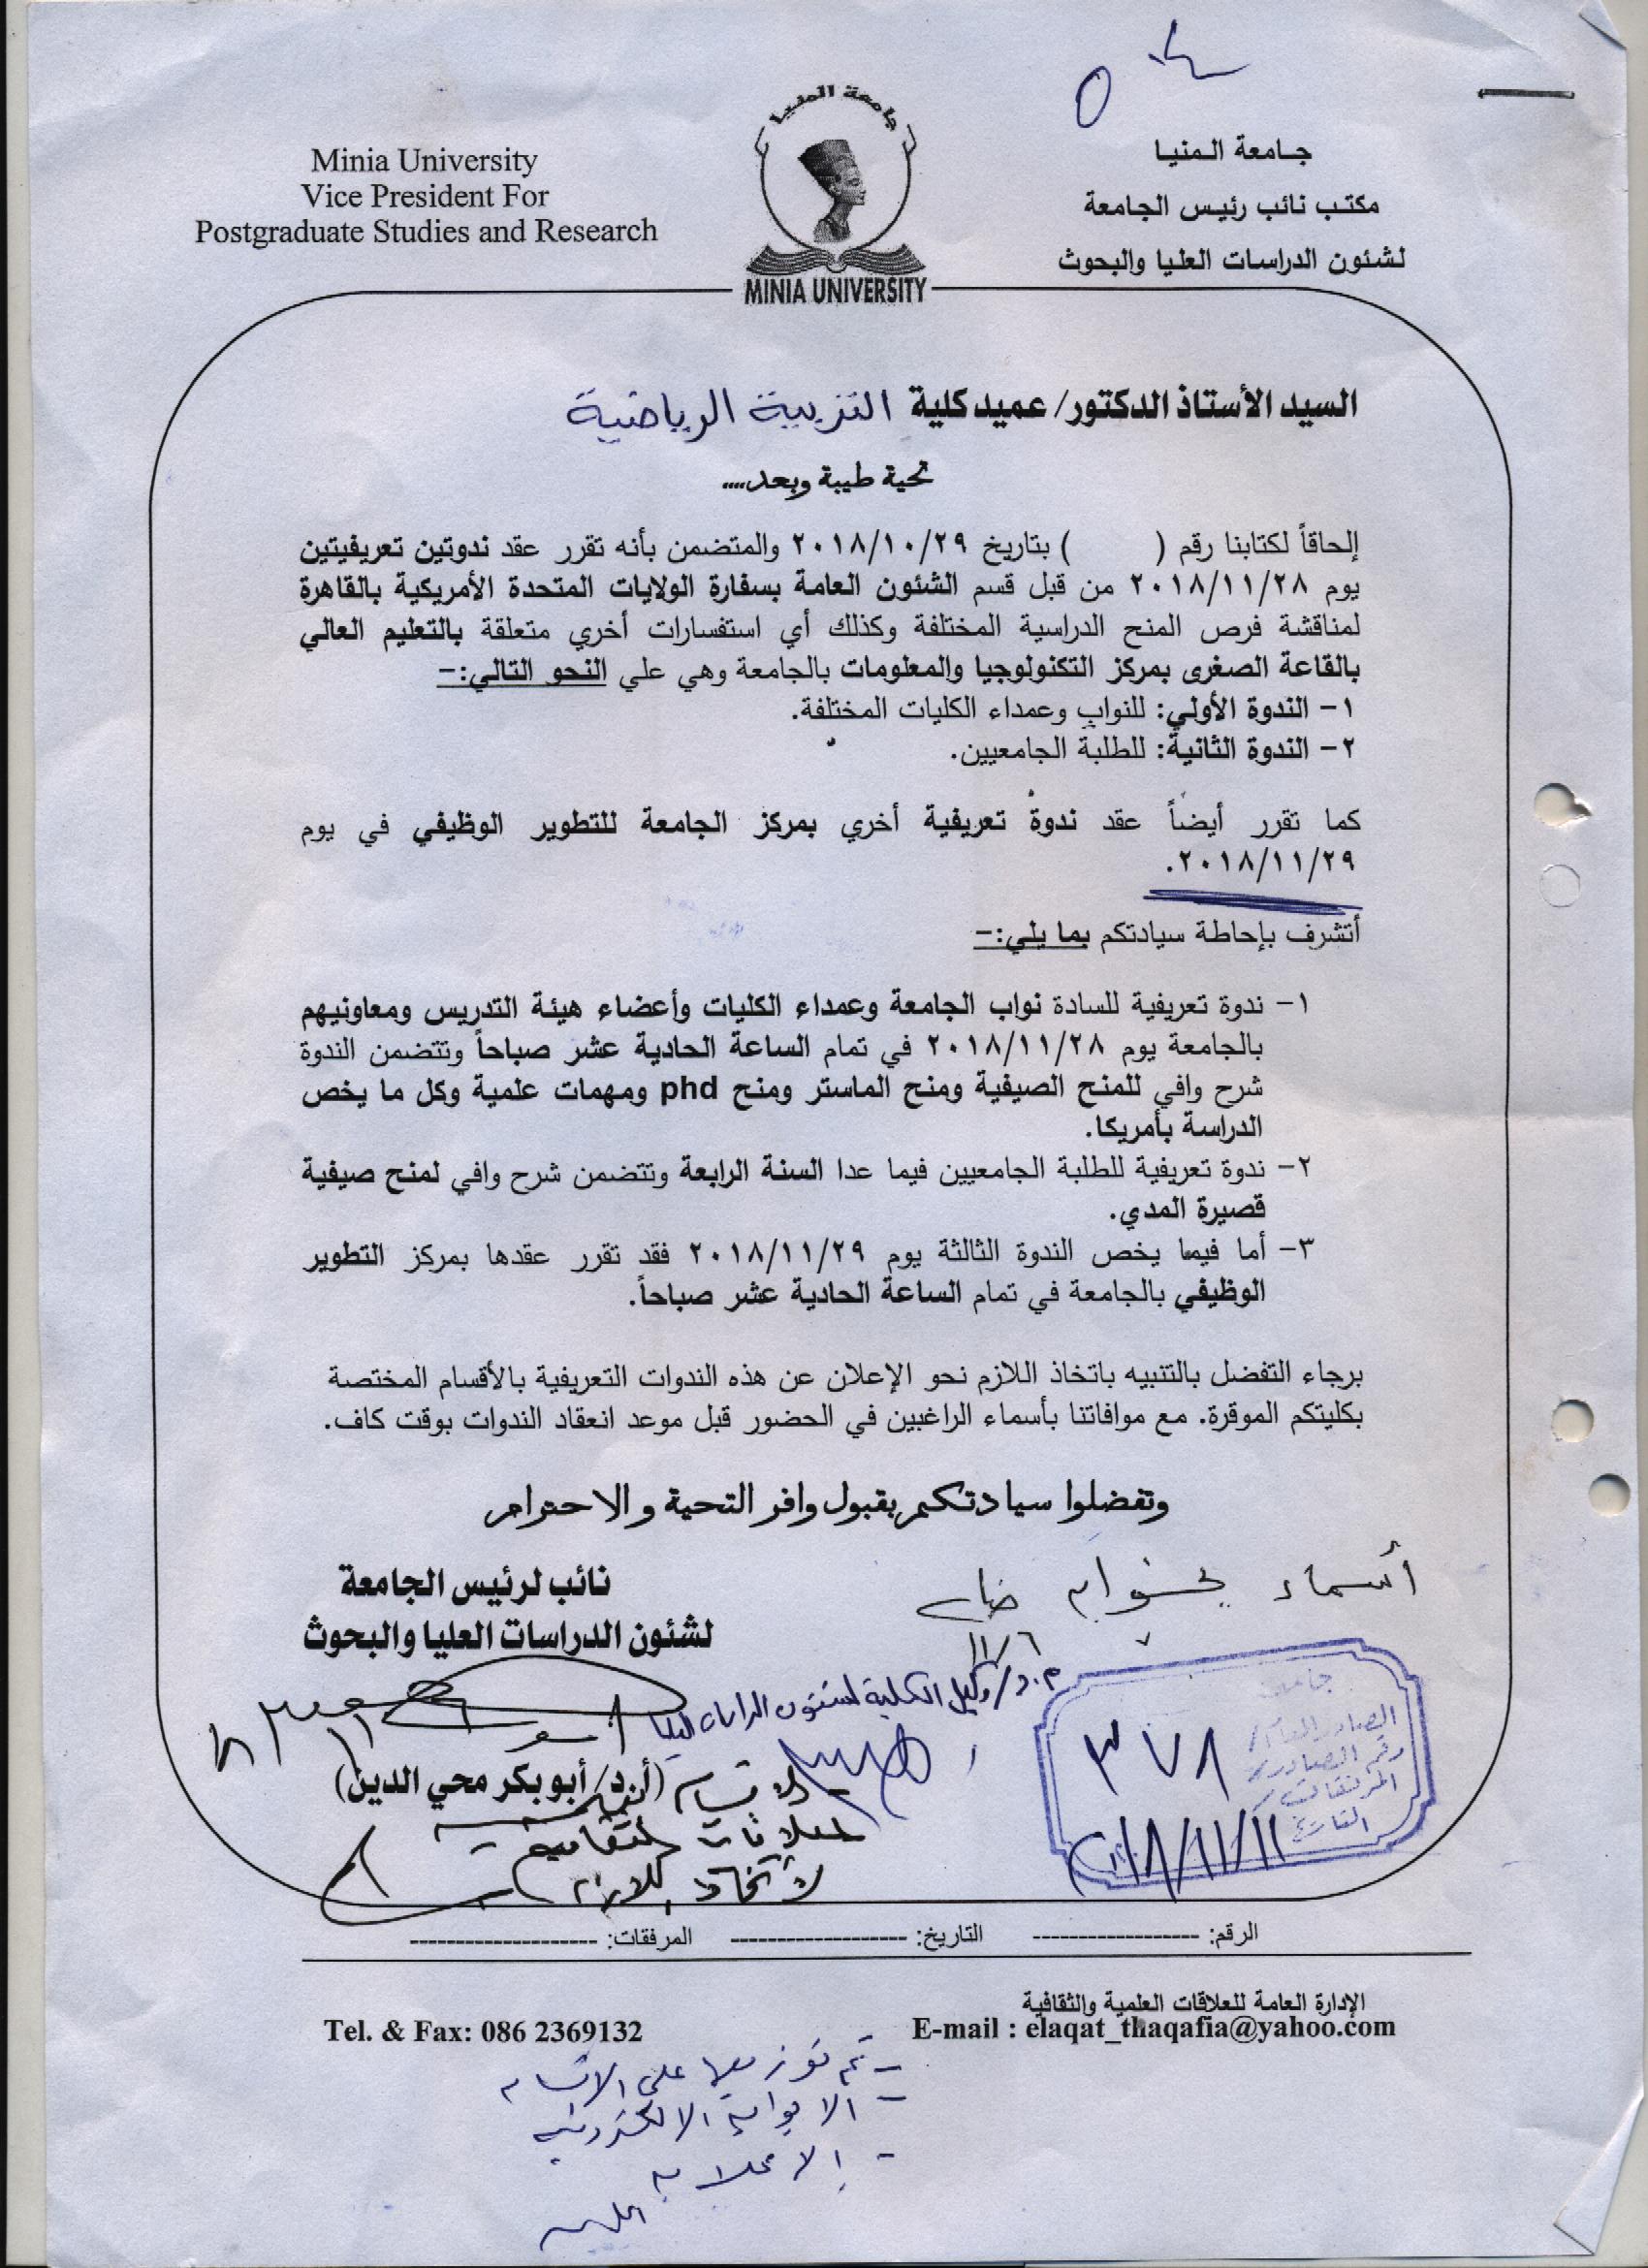 جامعة المنيا
Minia University
جـامعة الـمنيـا
Vice President For
مكتـب نائب رئيـس الجـامعة
Postgraduate Studies and Research
لشئون الدراسات العليا والبحوث
MINIA UNIVERSITY
السيد الأستاذ الدكتور/ عميد كلية التربية الرياضية
تحية طيبة وبعد....
إلحاقاً لكتابنا رقم (        ) بتاريخ ٢٠١٨/١٠/٢٩ والمتضمن بأنه تقرر عقد ندوتين تعريفيتين
يوم ٢٠١٨/١١/٢٨ من قبل قسم الشئون العامة بسفارة الولايات المتحدة الأمريكية بالقاهرة
لمناقشة فرص المنح الدراسية المختلفة وكذلك أي استفسارات أخري متعلقة بالتعليم العالي
بالقاعة الصغرى بمركز التكنولوجيا والمعلومات بالجامعة وهي علي النحو التالي:-
١- الندوة الأولي: للنواب وعمداء الكليات المختلفة.
٢- الندوة الثانية: للطلبة الجامعيين.
كما تقرر أيضاً عقد ندوة تعريفية أخري بمركز الجامعة للتطوير الوظيفي في يوم
٢٠١٨/١١/٢٩.
أتشرف بإحاطة سيادتكم بما يلي:-
١- ندوة تعريفية للسادة نواب الجامعة وعمداء الكليات وأعضاء هيئة التدريس ومعاونيهم
بالجامعة يوم ٢٠١٨/١١/٢٨ في تمام الساعة الحادية عشر صباحاً وتتضمن الندوة
شرح وافي للمنح الصيفية ومنح الماستر ومنح phd ومهمات علمية وكل ما يخص
الدراسة بأمريكا.
٢- ندوة تعريفية للطلبة الجامعيين فيما عدا السنة الرابعة وتتضمن شرح وافي لمنح صيفية
قصيرة المدي.
٣- أما فيما يخص الندوة الثالثة يوم ٢٠١٨/١١/٢٩ فقد تقرر عقدها بمركز التطوير
الوظيفي بالجامعة في تمام الساعة الحادية عشر صباحاً.
برجاء التفضل بالتنبيه باتخاذ اللازم نحو الإعلان عن هذه الندوات التعريفية بالأقسام المختصة
بكليتكم الموقرة. مع موافاتنا بأسماء الراغبين في الحضور قبل موعد انعقاد الندوات بوقت كاف.
وتفضلوا سيادتكم بقبول وافر التحية والاحترام
أسماء
نائب لرئيس الجامعة
لشئون الدراسات العليا والبحوث
١١/٦
أ.د/ وكيل الكلية لشئون الدراسات العليا
(أ.د/ أبو بكر محي الدين)
الصادر العام/
٣٧٨
رقم الصادر/
المرفقات/
التاريخ/
٢٠١٨/١١/١١
الأقسام
العلاقات الثقافية
لاتخاذ اللازم
الرقم: ------------------ التاريخ: ------------------- المرفقات: --------------------
الإدارة العامة للعلاقات العلمية والثقافية
Tel. & Fax: 086 2369132
E-mail : elaqat_thaqafia@yahoo.com
- تم توزيعها على الاقسام
- البوابة الالكترونية
- الاعلانات